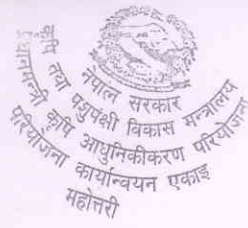 नेपाल सरकार
कृषि तथा पशुपक्षी विकास मन्त्रालय
प्रधानमन्त्री कृषि आधुनिकीकरण परियोजना
परियोजना कार्यान्वयन एकाइ
महोत्तरी